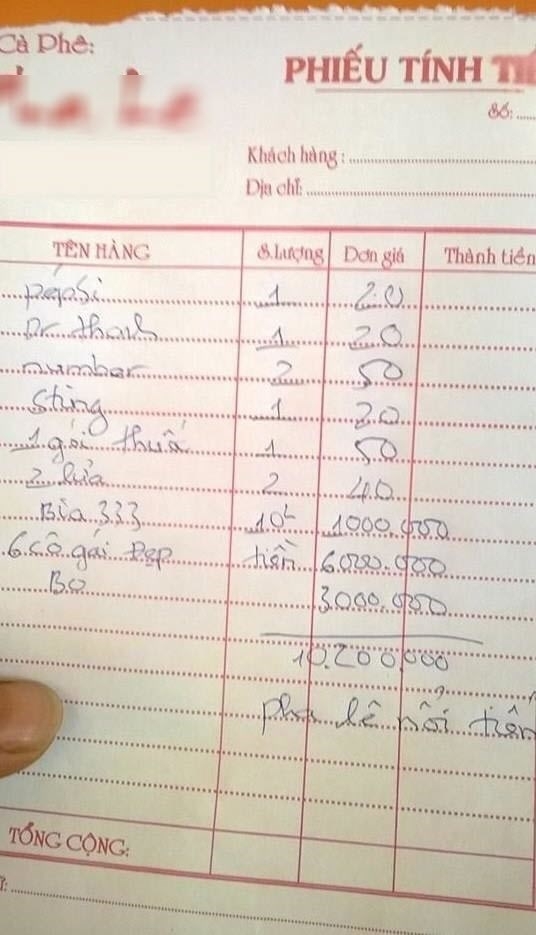 Cà Phê:
PHIẾU TÍNH TIỀ
Số: ......
Khách hàng : ..............................
Địa chỉ: ..............................
TÊN HÀNG S.Lượng Đơn giá Thành tiền
pepsi 1 20
Dr thanh 1 20
number 2 50
Sting 1 20
1 gói thuố 1 50
2 lửa 2 40
Bia 333 10L 1000.000
6 cô gái Đẹp tiền 6000.000
Bo 3000.000
10.200.000
pha lê nôỉ tiến
TỔNG CỘNG: